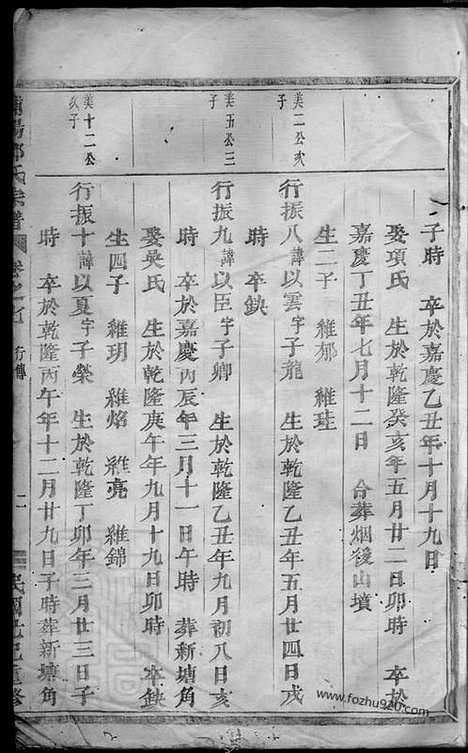 子時　卒於嘉慶乙丑年十月十九日
娶項氏　生於乾隆癸亥年五月廿二日卯時　卒於
嘉慶丁丑年七月十二日　合葬烟後山墳
生二子　維郁　維珪
美二公次
子
行振八諱以雲字子龍　生於乾隆乙丑年五月廿四日戌
時　卒缺
美五公三
子
行振九諱以臣字子卿　生於乾隆乙丑年九月初八日亥
時　卒於嘉慶丙辰年三月十一日午時　葬新塘角
娶吳氏　生於乾隆庚午年九月十九日卯時　卒缺
生四子　維玥　維焰　維亮　維錦
美十二公
次子
行振十諱以夏字子榮　生於乾隆丁卯年三月廿三日子
時　卒於乾隆丙午年十二月廿九日子時葬新塘角
氏宗譜
卷之七
行傳
二
民國
重修
www.fozhu920.com